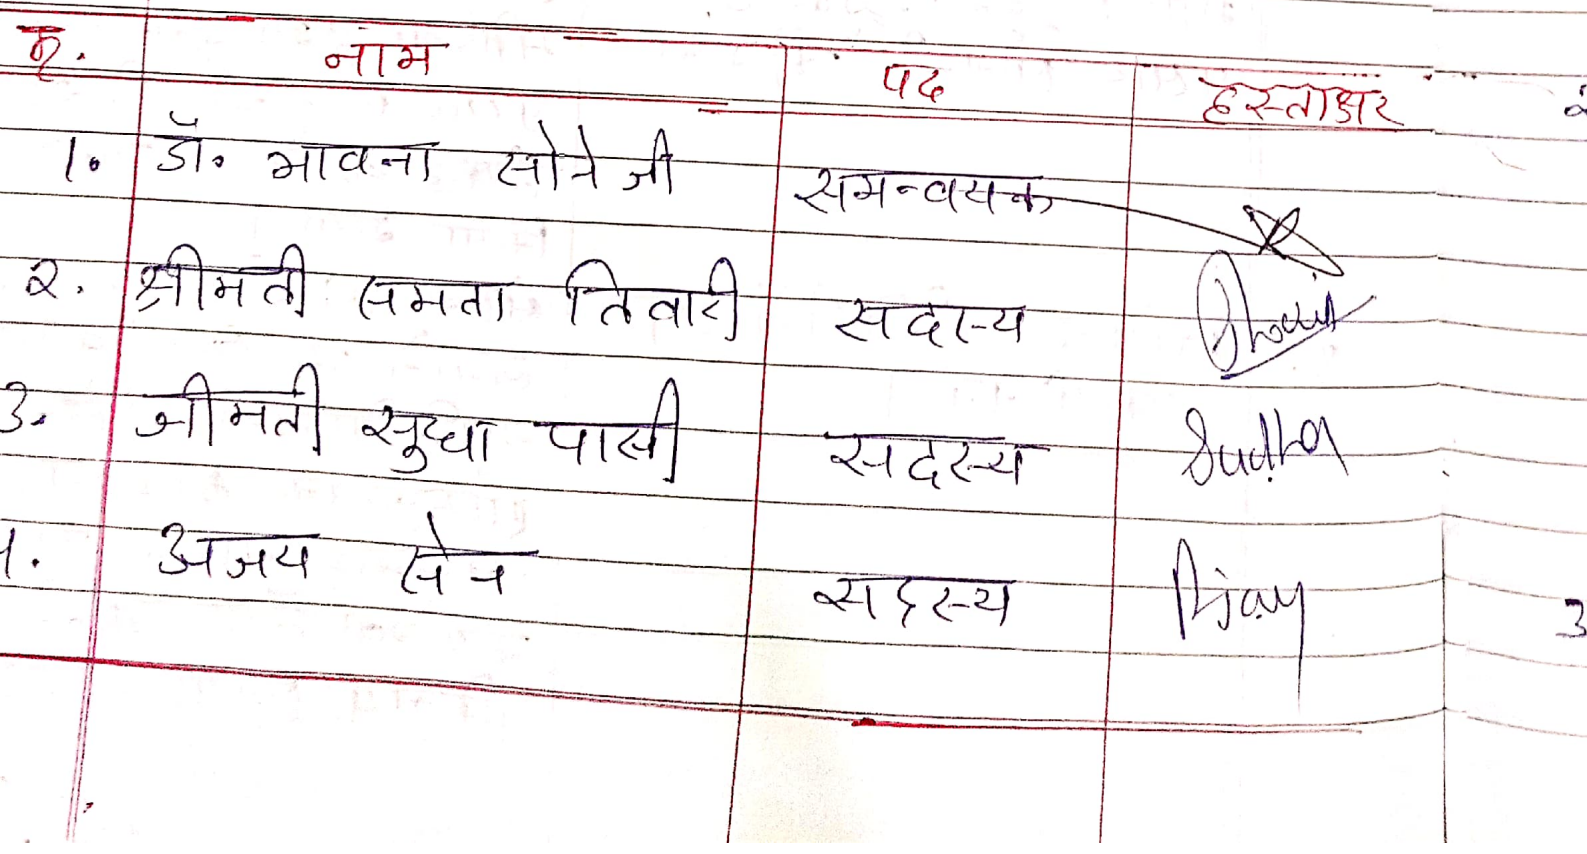 क्र. नाम पद हस्ताक्षर
1. डॉ. भावना सोनेजी समन्वयक
२. श्रीमती समता तिवारी सदस्य
3. श्रीमती सुधा पासी सदस्य Sudha
अजय सेन सदस्य Ajay
3